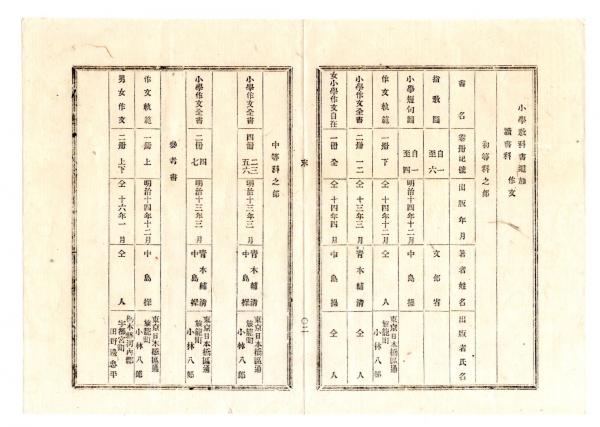 小學敎科書追加
讀書科 作文
初等科之部
書名 卷冊記號 出版年月 著者姓名 出版者氏名
指敎圖 自一至六 文部省
小學短句圖 自一至四 明治十四年十二月 中島操
作文軌範 一冊 下 仝 十四年十二月 仝 人 東京日本橋區通旅籠町 小林八郎
小學作文全書 二冊 一二 仝 十三年三月 靑木輔淸 仝 人
女小學作文自在 一冊 全 仝 十四年四月 中島操 仝 人
〇二
中等科之部
小學作文全書 四冊 二三五六 明治十三年三月 靑木輔淸 中島操 東京日本橋區通旅籠町 小林八郎
小學作文全書 二冊 四七 明治十三年三月 靑木輔淸 中島操 東京日本橋區通旅籠町 小林八郎
參考書
作文軌範 一冊 上 明治十四年十二月 中島操 東京日本橋區通旅籠町 小林八郎
男女作文 二冊 上下 仝 十六年一月 仝 人 栃木縣河內郡宇都宮町 田野邊忠平